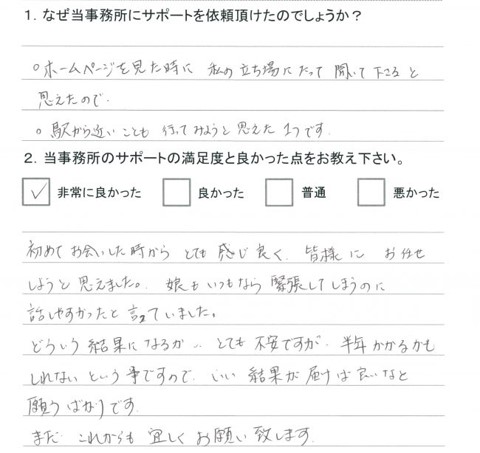 1. なぜ当事務所にサポートを依頼頂けたのでしょうか？
○ホームページを見た時に 私の立ち場にたって 聞いて下さると
思えたので.
○ 駅から近いことも 行ってみようと思えた 1つです.
2. 当事務所のサポートの満足度と良かった点をお教え下さい。
✓ 非常に良かった 良かった 普通 悪かった
初めてお会いした時から とても 感じ良く. 皆様に お任せ
しようと 思えました。 娘も いつもなら 緊張してしまうのに
話しやすかったと 言っていました。
どういう 結果になるか‥ とても 不安ですが. 半年かかるかも
しれない という 事ですので. いい 結果が 届けば 良いなと
願うばかりです.
まだ これからも 宜しく お願い致します.